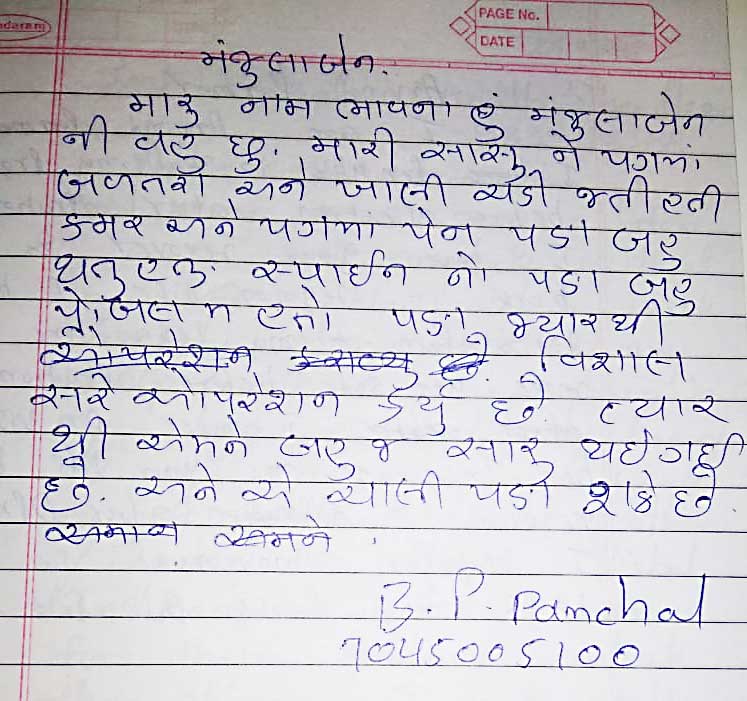 ndaram
PAGE No.
DATE
મંજુલાબેન.
મારુ નામ ભાવના હું મંજુલાબેન
ની વહુ છુ. મારી સાસુ ને પગમાં
બળતરા અને ખાલી ચડી જતી હતી
કમર અને પગમાં પેન પણ બહુ
થતુ હતુ. સ્પાઈન નો પણ બહુ
પ્રોબલમ હતો પણ જ્યારથી
ઓપરેશન કરાવ્યુ છે વિશાલ
સરે ઓપરેશન કર્યુ છે ત્યાર
થી એમને બહુ જ સારુ થઈ ગયુ
છે. અને એ ચાલી પણ શકે છે.
અમને
B. P. Panchal
7045005100